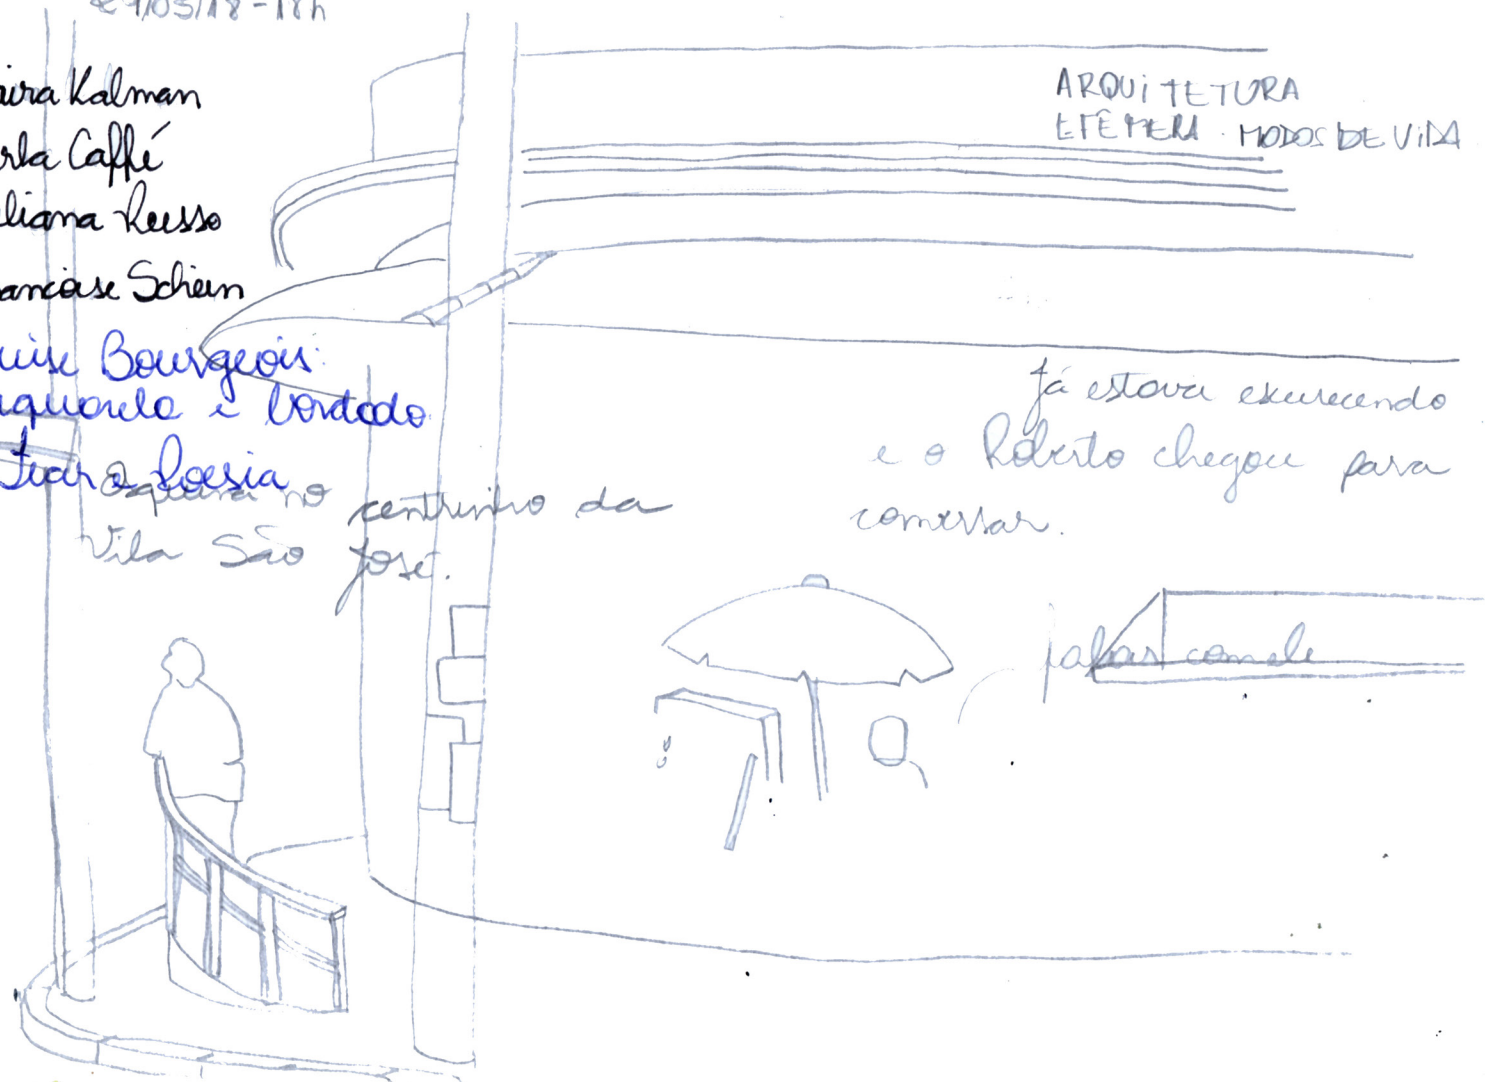 29/03/18 - 18h
aira Kalman
arla Caffé
uliana Russo
rancoise Schein
ouise Bourgeois:
aquarela e bordado
a Poesia
Esquina no centrinho da
Vila São José.
ARQUITETURA
EFÊMERA. MODOS DE VIDA
Já estava escurecendo
e o Roberto chegou para
conversar.